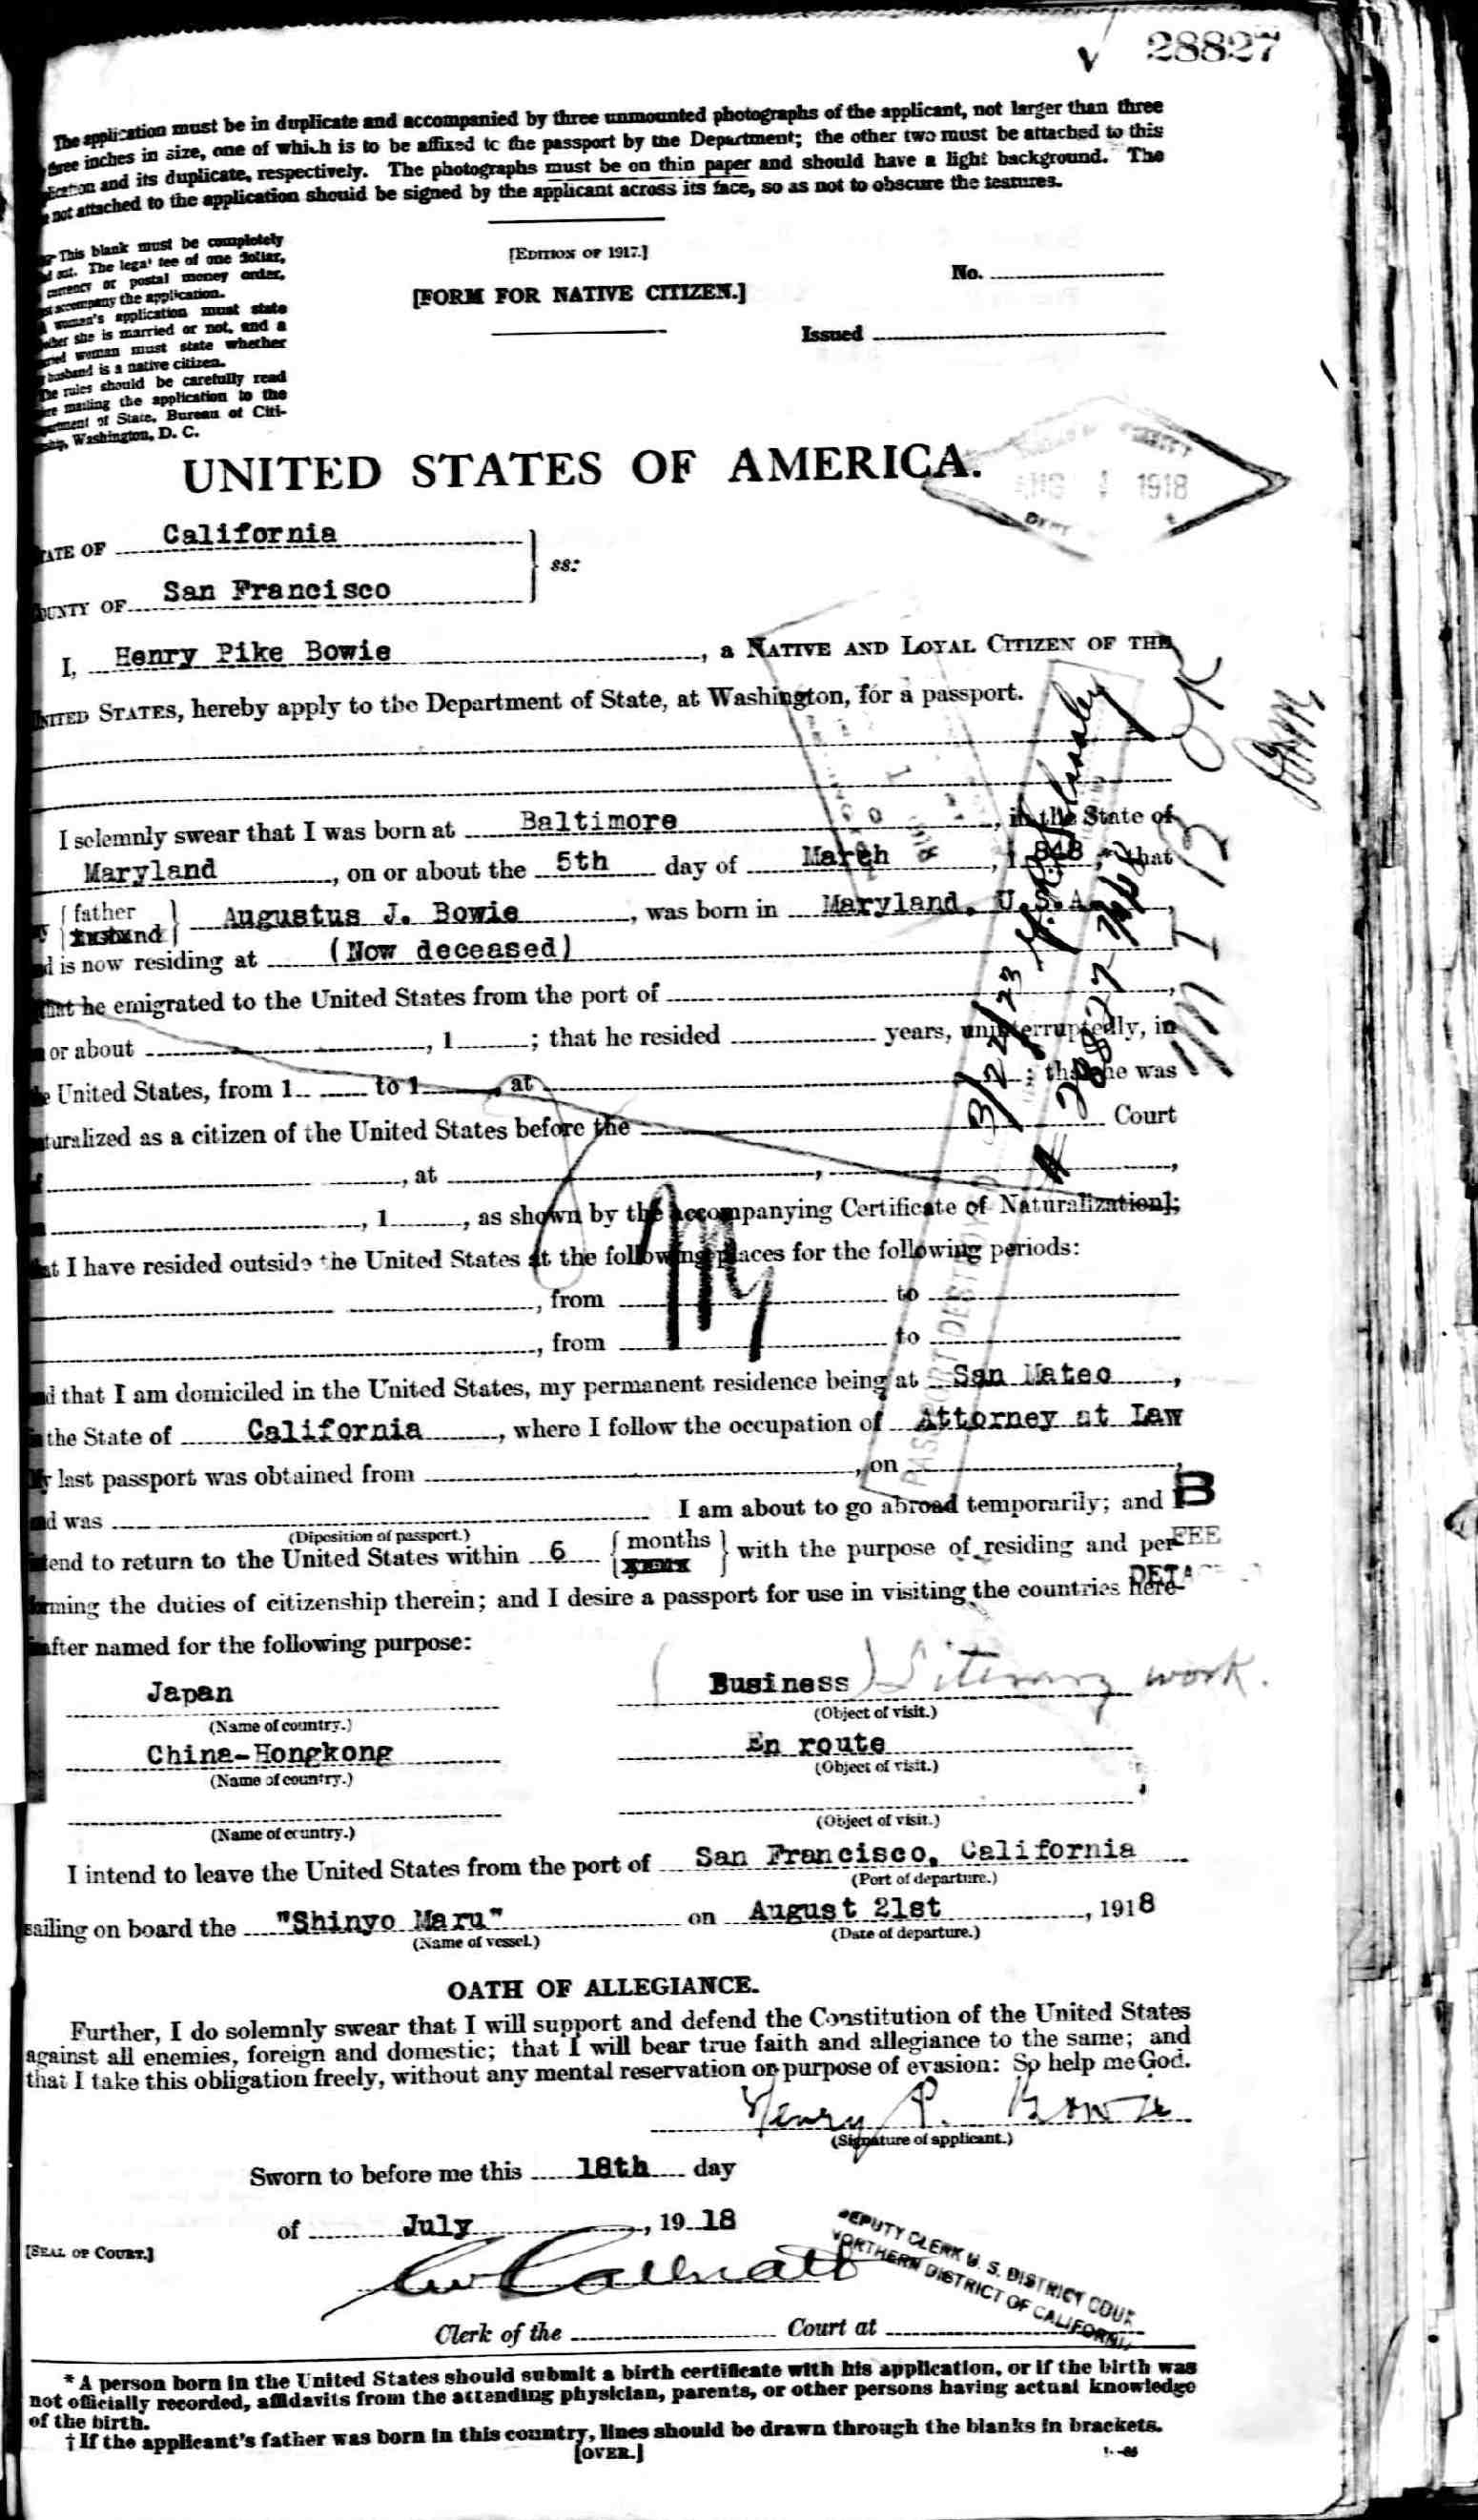 28827
The application must be in duplicate and accompanied by three unmounted photographs of the applicant, not larger than three
three inches in size, one of which is to be affixed to the passport by the Department; the other two must be attached to this
and its duplicate, respectively. The photographs must be on thin paper and should have a light background. The
not attached to the application should be signed by the applicant across its face, so as not to obscure the features.
This blank must be completely
out. The legal fee of one dollar,
currency or postal money order,
accompany the application.
woman's application must state
she is married or not, and a
woman must state whether
husband is a native citizen.
The rules should be carefully read
mailing the application to the
of State, Bureau of Citi-
Washington, D. C.
[EDITION OF 1917.]
[FORM FOR NATIVE CITIZEN.]
No.
Issued
UNITED STATES OF AMERICA.
1918
STATE OF California
COUNTY OF San Francisco
ss:
I, Henry Pike Bowie, a NATIVE AND LOYAL CITIZEN OF THE
UNITED STATES, hereby apply to the Department of State, at Washington, for a passport.
OK
I solemnly swear that I was born at Baltimore, in the State of
Maryland, on or about the 5th day of March, 1848,* that
father
husband
Augustus J. Bowie, was born in Maryland, U.S.A.,
is now residing at (Now deceased)
that he emigrated to the United States from the port of ,
or about , 1 ; that he resided years, uninterruptedly, in
United States, from 1 to 1 , at ; that he was
naturalized as a citizen of the United States before the Court
, at ,
, 1 , as shown by the accompanying Certificate of Naturalization];
that I have resided outside the United States at the following places for the following periods:
, from to
, from to
3/22/23
# 28827
PASSPORT DESTROYED
and that I am domiciled in the United States, my permanent residence being at San Mateo,
the State of California, where I follow the occupation of Attorney at Law
My last passport was obtained from , on ,
and was I am about to go abroad temporarily; and I
(Diposition of passport.)
B
intend to return to the United States within 6 months with the purpose of residing and per-
FEE
forming the duties of citizenship therein; and I desire a passport for use in visiting the countries here-
inafter named for the following purpose:
Japan (Business) Literary work.
(Name of country.) (Object of visit.)
China-Hongkong En route
(Name of country.) (Object of visit.)
(Name of country.) (Object of visit.)
I intend to leave the United States from the port of San Francisco, California
(Port of departure.)
sailing on board the "Shinyo Maru" on August 21st, 1918
(Name of vessel.) (Date of departure.)
OATH OF ALLEGIANCE.
Further, I do solemnly swear that I will support and defend the Constitution of the United States
against all enemies, foreign and domestic; that I will bear true faith and allegiance to the same; and
that I take this obligation freely, without any mental reservation or purpose of evasion: So help me God.
Henry P. Bowie
(Signature of applicant.)
Sworn to before me this 18th day
of July, 19 18
[SEAL OF COURT.]
DEPUTY CLERK U. S. DISTRICT COURT
NORTHERN DISTRICT OF CALIFORNIA
Clerk of the Court at
* A person born in the United States should submit a birth certificate with his application, or if the birth was
not officially recorded, affidavits from the attending physician, parents, or other persons having actual knowledge
of the birth.
† If the applicant's father was born in this country, lines should be drawn through the blanks in brackets.
[OVER.]